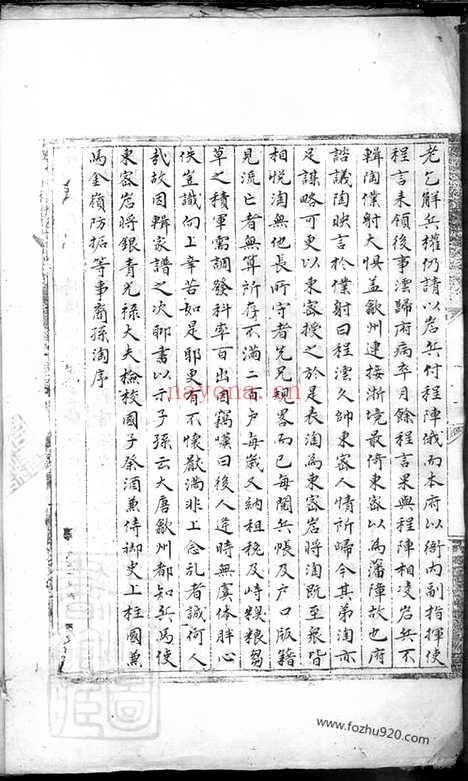 老乞解兵權仍請以岩兵付程陣俄而本府以衙内副指揮使
程言来領後事澐歸府病卒月餘程言果與程陣相凌岩兵不
輯陶僕射大惧盖歙州連接浙境最倚東宻以為藩陣故也府
諮議陶映言於僕射曰程澐久帥東宻人情所歸今其弟淘亦
足謀略可更以東宻授之於是表淘為東宻岩將淘既至衆皆
相悦淘無他長所守者先兄規畧而已每閲兵帳及户口版籍
見流亡者無算所存不滿二百户每歲又納租税及峙糗粮芻
草之積軍需調發科率百出因竊嘆曰後人造時無虞体胖心
佚豈識向上辛苦如是耶更有不懷歉満非上念乱者誠何人
哉故因輯家譜之次聊書以示子孫云大唐歙州都知兵馬使
東宻岩將銀青光禄大夫檢校國子祭酒兼侍御史上柱國兼
馬金嶺防拓等事裔孫淘序
nayona.cn
www.fozhu920.com